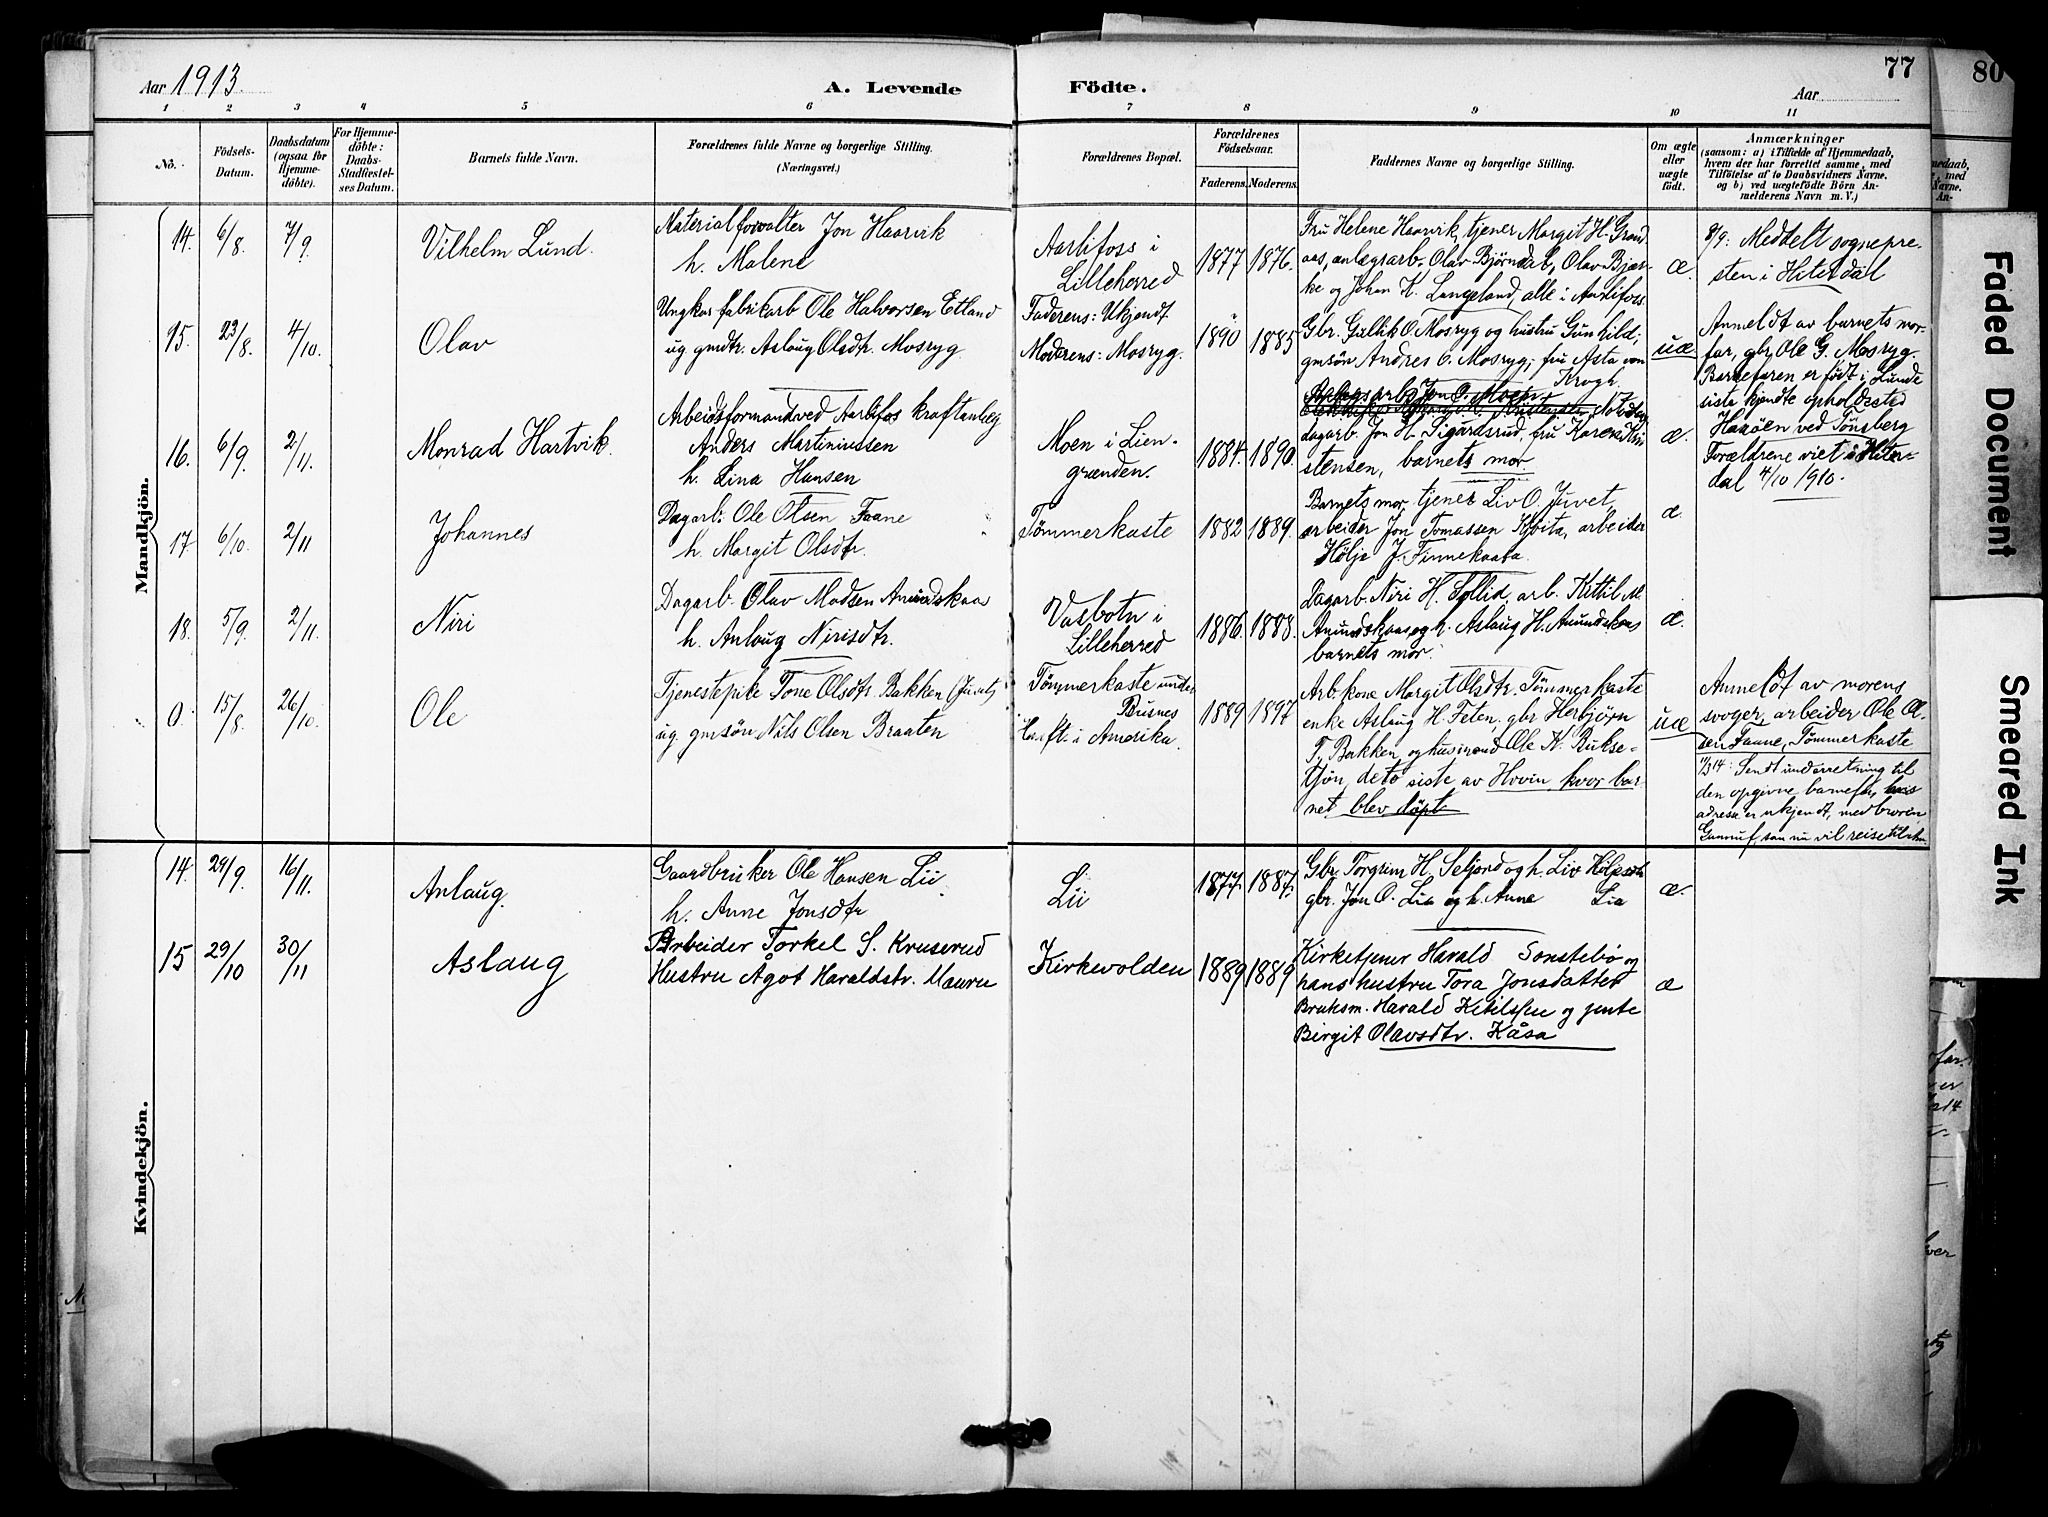 Aar 1913.
A. Levende
Födte.
77
80
Aar
1 2 3 4 5 6 7 8 9 10 11
No.
Födsels-
Datum.
Daabsdatum
(ogsaa for
Hjemme-
döbte).
For Hjemme-
döbte:
Daabs-
Stadfæstel-
ses Datum.
Barnets fulde Navn.
Forældrenes fulde Navne og borgerlige Stilling.
(Næringsvei.)
Forældrenes Bopæl.
Forældrenes
Födselsaar.
Faderens. Moderens.
Faddernes Navne og borgerlige Stilling.
Om ægte
eller
uægte
födt.
Anmærkninger
(saasom: a) i Tilfælde af Hjemmedaab,
hvem der har forrettet samme, med
Tilföielse af to Daabsvidners Navne.
og b) ved uægtefödte Börn An-
melderens Navn m. V.)
Mandkjön.
14. 6/8. 7/9.
Vilhelm Lund.
Materialforvalter Jon Haarvik
h. Malene
Aarlifors i
Lilleherred
1877 1876.
Fru Helene Haarvik, tjener Margit H. Gran-
aas, anlægsarb. Olav Björndal, Olav Bjer-
ke og Johan K. Langeland, alle i Aarlifors
æ.
8/9: Meddelt sognepre-
sten i Hiterdal
15. 23/8. 4/10.
Olav
Ungkar fabrikarb Ole Halvorsen Etland
ug gmdtr. Aslaug Olsdtr. Mosryg.
Faderens: Ukjendt
Moderens: Mosryg.
1890 1885
Gbr. Gullik O. Mosryg og hustru Gunhild;
gmsön Andres O. Mosryg; fru Asta von
Krogh.
uæ.
Anmeldt av barnets mor-
far, gbr. Ole G. Mosryg.
Barnefaren er født i Lunde
siste kjendte opholdssted
Haaöen ved Tönsberg
16. 6/9. 2/11.
Monrad Hartvik.
Arbeidsformand ved Aarlifos kraftanlæg
Anders Martiniussen
h. Lina Hansen
Moen i Lien-
grænden.
1884. 1890.
dagarb. Jon H. Sigurdsrud, fru Karen Kri-
stensen, barnets mor
æ.
Forældrene viet i Hiter-
dal 4/10 1910.
17. 6/10. 2/11
Johannes
Dagarb. Ole Olsen Faane
h. Margit Olsdtr.
Tømmerkaste
1882 1889.
Barnets mor, tjener Liv O. Juvet,
arbeider Jon Tomassen Kvita, arbeider
Hølje J. Finnekaasa.
æ.
18. 5/9. 2/11.
Niri
Dagarb. Olav Madsen Amundskaas
h. Anlaug Nirisdtr.
Vasbotn i
Lilleherred
1886. 1888.
Dagarb. Niri H. Sollid, arb. Kittil M.
Amundskaas og h. Aslaug H. Amundskaas
barnets mor.
æ.
0. 15/8. 26/10.
Ole
Tjenestepike Tone Olsdtr. Bakken (Juvet)
ug gmsön Nils Olsen Braaten
Tømmerkaste under
Busnes
i Amerika.
1889 1897
Arb. kone Margit Olsdtr. Tømmerkaste
enke Aslaug H. Feten, gbr Herbjörn
T. Bakken, og husmand Ole K. Rukse-
tjön, de to siste av Hovin, hvor bar-
net blev døpt
uæ
Anmeldt av morens
svoger, arbeider Ole Ol-
sen Faane, Tømmerkaste
11/3 14: Sendt underretning til
den opgivne barnefar, hvis
adresse er ukjendt, med broren
Gunnuf, som nu vil reise til ham.
Kvindekjön.
14. 29/9. 16/11.
Anlaug.
Gaardbruker Ole Hansen Lii
h. Anne Jonsdtr
Lii
1877. 1887.
Gbr. Torgrim H. Seljord og h. Liv Høljesdtr
gbr. Jon O. Lia og h. Anne Lia
æ.
15 29/10 30/11
Aslaug
Arbeider Torkel S. Kruserud
Hustru Ågot Haraldstr. Mauru
Kirkevolden
1889 1889
Kirketjener Harald Sønstebø og
hans hustru Tora Jonsdatter
Bruksm. Harald Ketilssen og jente
Birgit Olavsdtr. Kåsa
æ
Faded Document
Smeared Ink